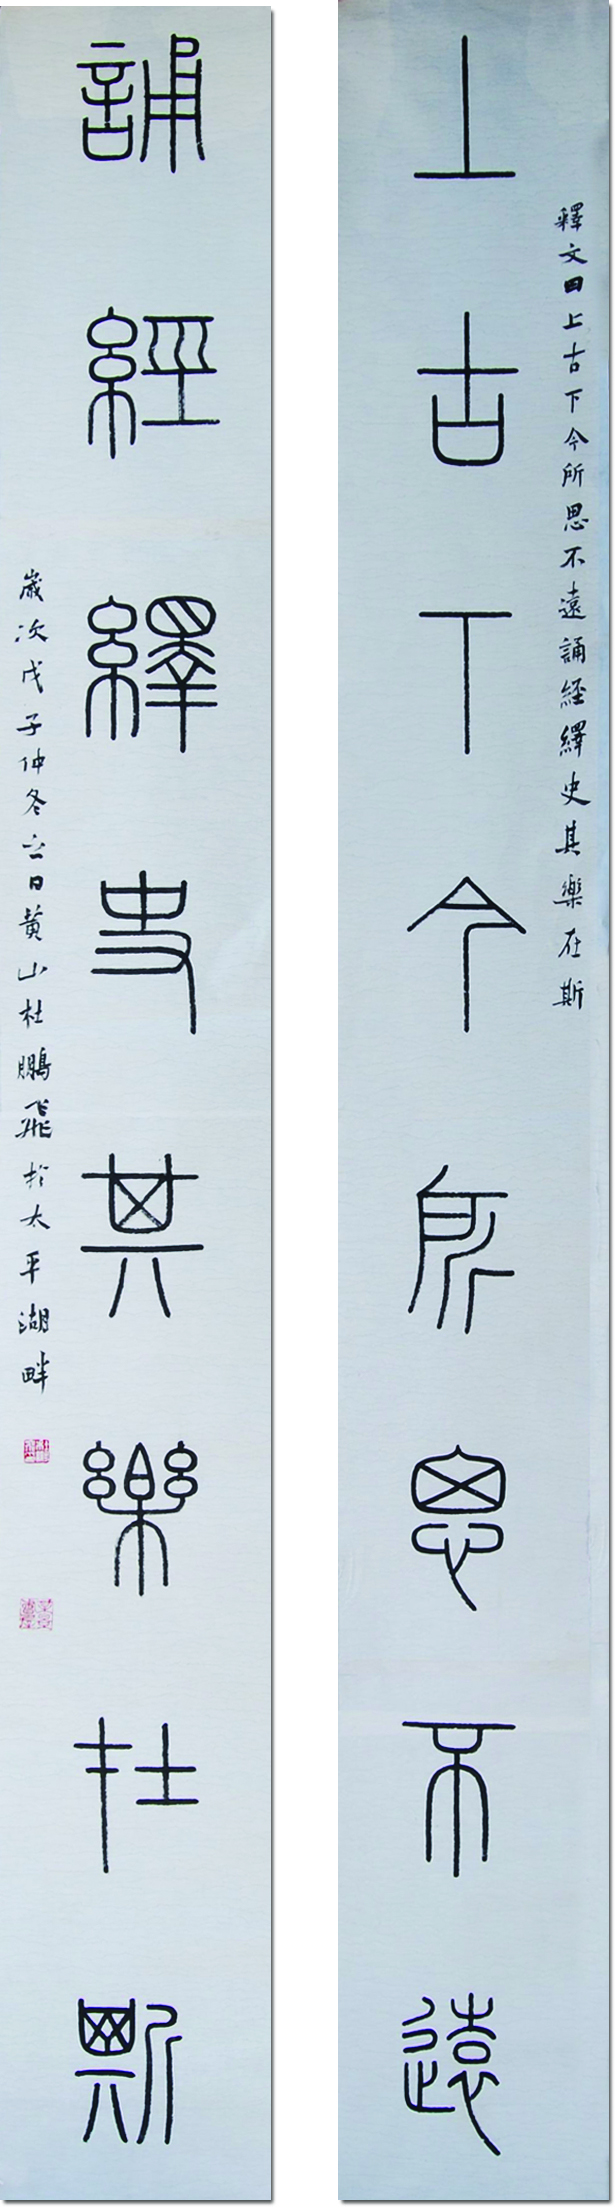 釋文曰上古下今所思不遠誦經繹史其樂在斯
上古下今所思不遠
誦經繹史其樂在斯
歲次戊子仲冬六日黄山杜鵬飛於太平湖畔